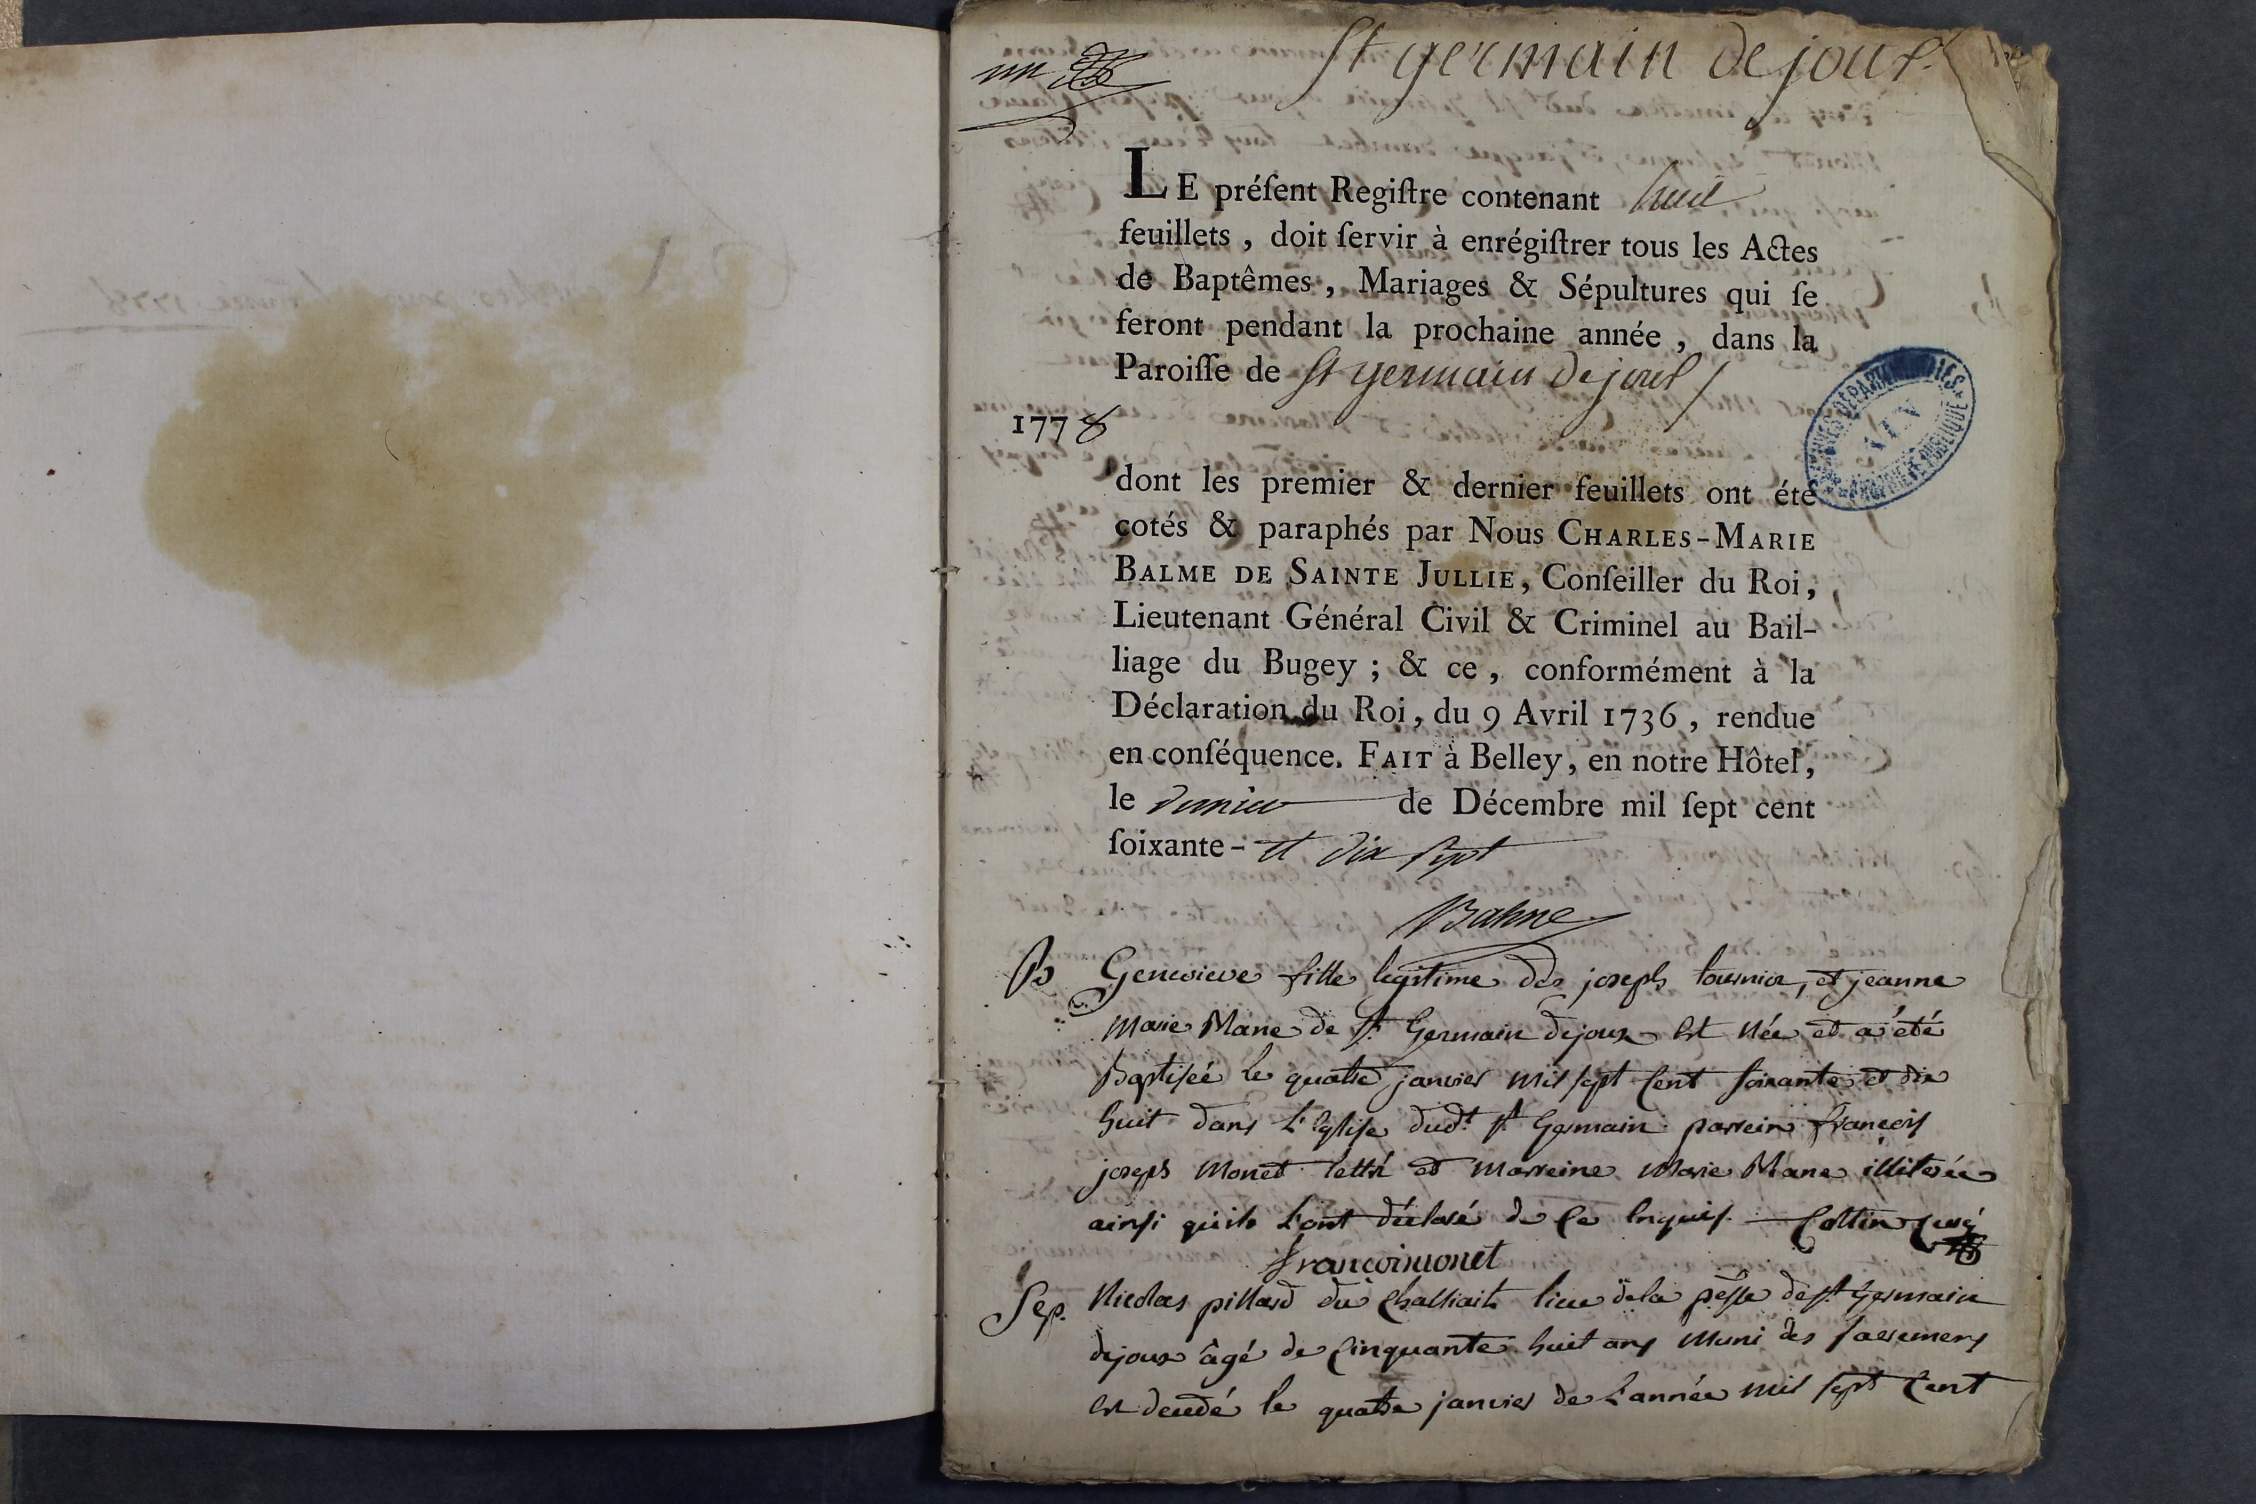 un
St germain de joux
LE préſent Regiſtre contenant huit
feuillets , doit ſervir à enrégiſtrer tous les Actes
de Baptêmes , Mariages & Sépultures qui ſe
feront pendant la prochaine année , dans la
Paroiſſe de St germain de joux
1778
dont les premier & dernier feuillets ont été
cotés & paraphés par Nous CHARLES-MARIE
BALME DE SAINTE JULLIE, Conſeiller du Roi,
Lieutenant Général Civil & Criminel au Bail-
liage du Bugey ; & ce , conformément à la
Déclaration du Roi, du 9 Avril 1736 , rendue
en conſéquence. FAIT à Belley, en notre Hôtel,
le dernier de Décembre mil ſept cent
ſoixante- et dix sept
Balme
B Genevieve fille legitime de joseph tournier, et jeanne
Marie Mane de St Germain dejoux est née et a été
Baptisée le quatre janvier mil sept Cent soixante et dix
huit dans L'Eglise dudt St Germain parrein françois
joseph Monet lettré et marreine Marie Mane illiterée
ainsi qu'ils L'ont déclaré de ce Enquis. Cottin Curé
francoimonet
Sep. Nicolas pillard du Challiait lieu dela pësse de St Germain
dejoux âgé de Cinquante huit ans Muni des sacremens
est decedé le quatre janvier de L'année mil sept Cent
ARCHIVES DEPARTEMENTALES
AIN
PROPRIETE PUBLIQUE